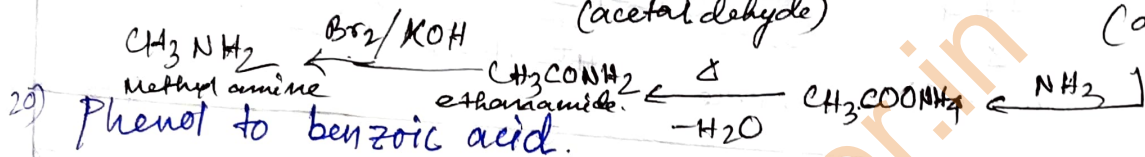 (acetaldehyde)
CH3NH2 Br2/KOH CH3CONH2 Δ -H2O CH3COONH4 NH3
Methyl amine ethanamide.
20) Phenol to benzoic acid.
er.in